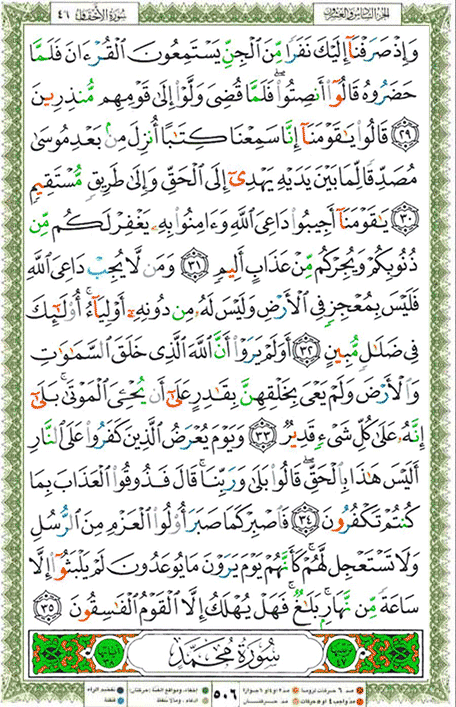 الجزء السادس والعشرون سورة الأحقاف ٤٦
وَإِذْ صَرَفْنَآ إِلَيْكَ نَفَرًا مِّنَ ٱلْجِنِّ يَسْتَمِعُونَ ٱلْقُرْءَانَ فَلَمَّا
حَضَرُوهُ قَالُوٓا۟ أَنصِتُوا۟ ۖ فَلَمَّا قُضِىَ وَلَّوْا۟ إِلَىٰ قَوْمِهِم مُّنذِرِينَ
٢٩ قَالُوا۟ يَٰقَوْمَنَآ إِنَّا سَمِعْنَا كِتَٰبًا أُنزِلَ مِنۢ بَعْدِ مُوسَىٰ
مُصَدِّقًا لِّمَا بَيْنَ يَدَيْهِ يَهْدِىٓ إِلَى ٱلْحَقِّ وَإِلَىٰ طَرِيقٍ مُّسْتَقِيمٍ
٣٠ يَٰقَوْمَنَآ أَجِيبُوا۟ دَاعِىَ ٱللَّهِ وَءَامِنُوا۟ بِهِۦ يَغْفِرْ لَكُم مِّن
ذُنُوبِكُمْ وَيُجِرْكُم مِّنْ عَذَابٍ أَلِيمٍ ٣١ وَمَن لَّا يُجِبْ دَاعِىَ ٱللَّهِ
فَلَيْسَ بِمُعْجِزٍ فِى ٱلْأَرْضِ وَلَيْسَ لَهُۥ مِن دُونِهِۦٓ أَوْلِيَآءُ ۚ أُو۟لَٰٓئِكَ
فِى ضَلَٰلٍ مُّبِينٍ ٣٢ أَوَلَمْ يَرَوْا۟ أَنَّ ٱللَّهَ ٱلَّذِى خَلَقَ ٱلسَّمَٰوَٰتِ
وَٱلْأَرْضَ وَلَمْ يَعْىَ بِخَلْقِهِنَّ بِقَٰدِرٍ عَلَىٰٓ أَن يُحْۦِىَ ٱلْمَوْتَىٰ ۚ بَلَىٰٓ
إِنَّهُۥ عَلَىٰ كُلِّ شَىْءٍ قَدِيرٌ ٣٣ وَيَوْمَ يُعْرَضُ ٱلَّذِينَ كَفَرُوا۟ عَلَى ٱلنَّارِ
أَلَيْسَ هَٰذَا بِٱلْحَقِّ ۖ قَالُوا۟ بَلَىٰ وَرَبِّنَا ۚ قَالَ فَذُوقُوا۟ ٱلْعَذَابَ بِمَا
كُنتُمْ تَكْفُرُونَ ٣٤ فَٱصْبِرْ كَمَا صَبَرَ أُو۟لُوا۟ ٱلْعَزْمِ مِنَ ٱلرُّسُلِ
وَلَا تَسْتَعْجِل لَّهُمْ ۚ كَأَنَّهُمْ يَوْمَ يَرَوْنَ مَا يُوعَدُونَ لَمْ يَلْبَثُوٓا۟ إِلَّا
سَاعَةً مِّن نَّهَارٍۭ ۚ بَلَٰغٌ ۚ فَهَلْ يُهْلَكُ إِلَّا ٱلْقَوْمُ ٱلْفَٰسِقُونَ ٣٥
سُورَةُ مُحَمَّد
٥٠٦